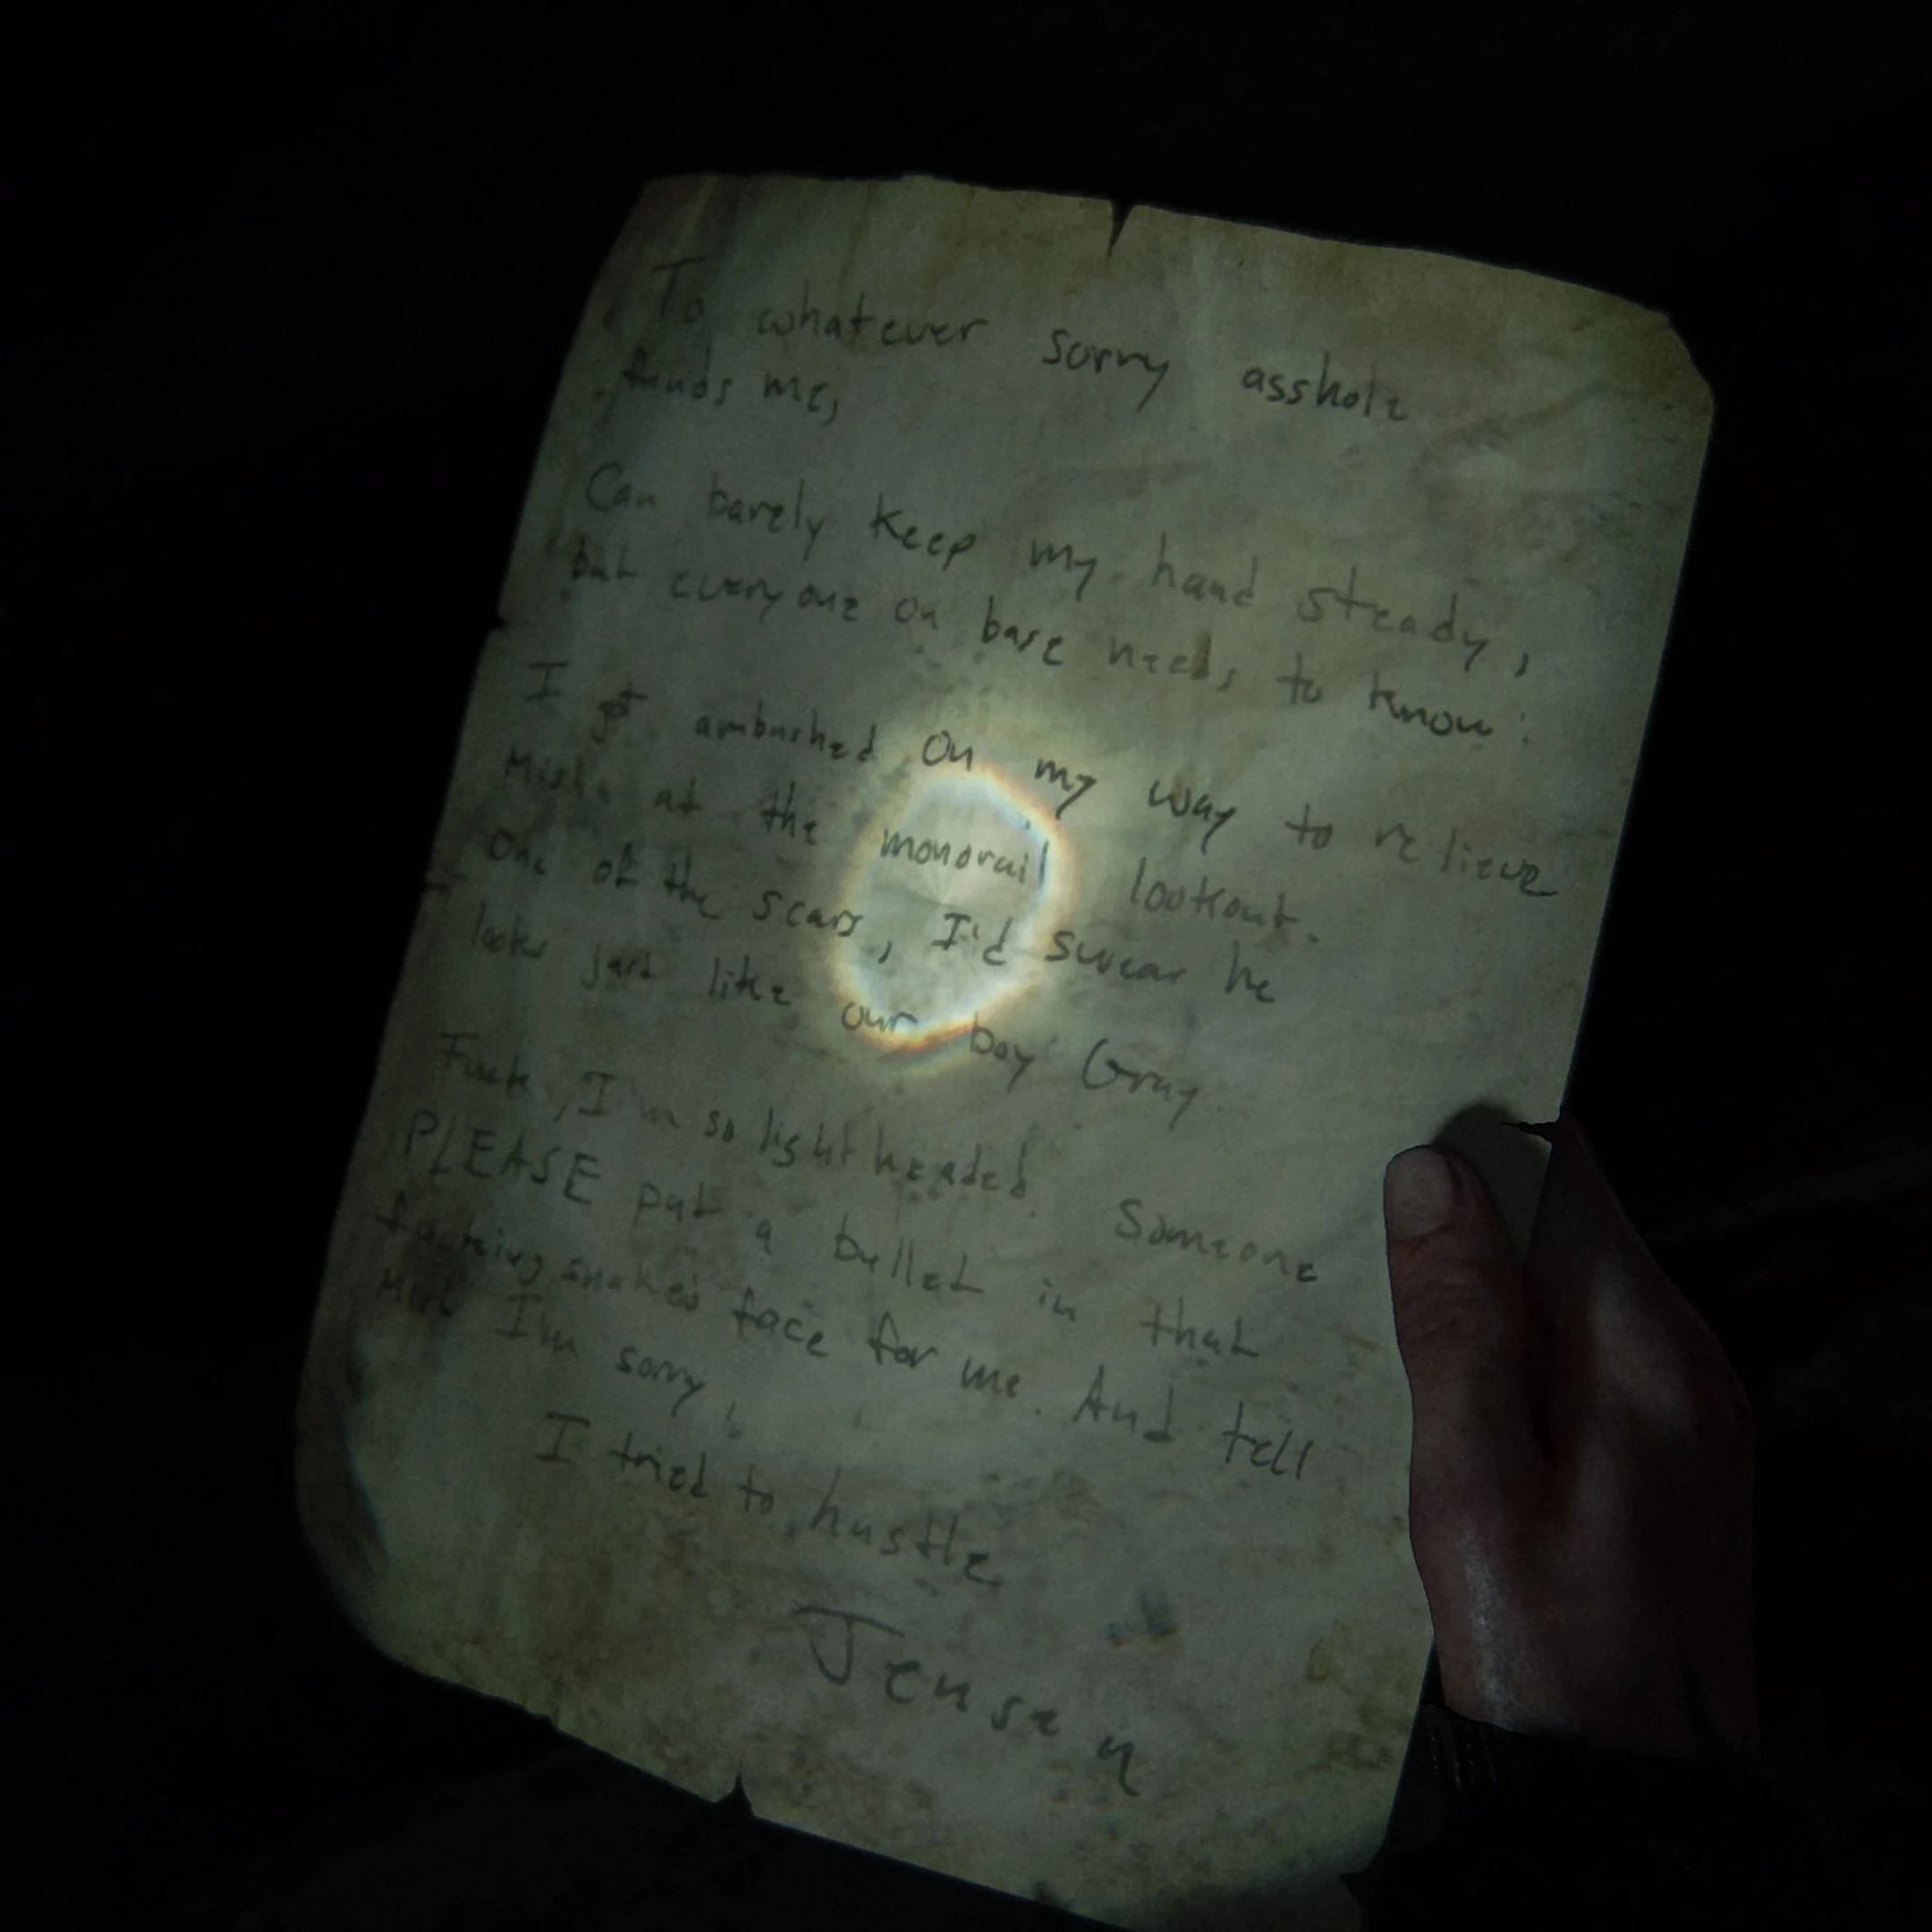 To whatever sorry asshole
finds me,
Can barely keep my hand steady,
but everyone on base needs to know:
I got ambushed on my way to relieve
Misha at the monorail lookout.
One of the scars, I'd swear he
looks just like our boy Gray.
Fuck, I'm so lightheaded. Someone
PLEASE put a bullet in that
fucking snake's face for me. And tell
I'm sorry,
I tried to hustle
Jensen